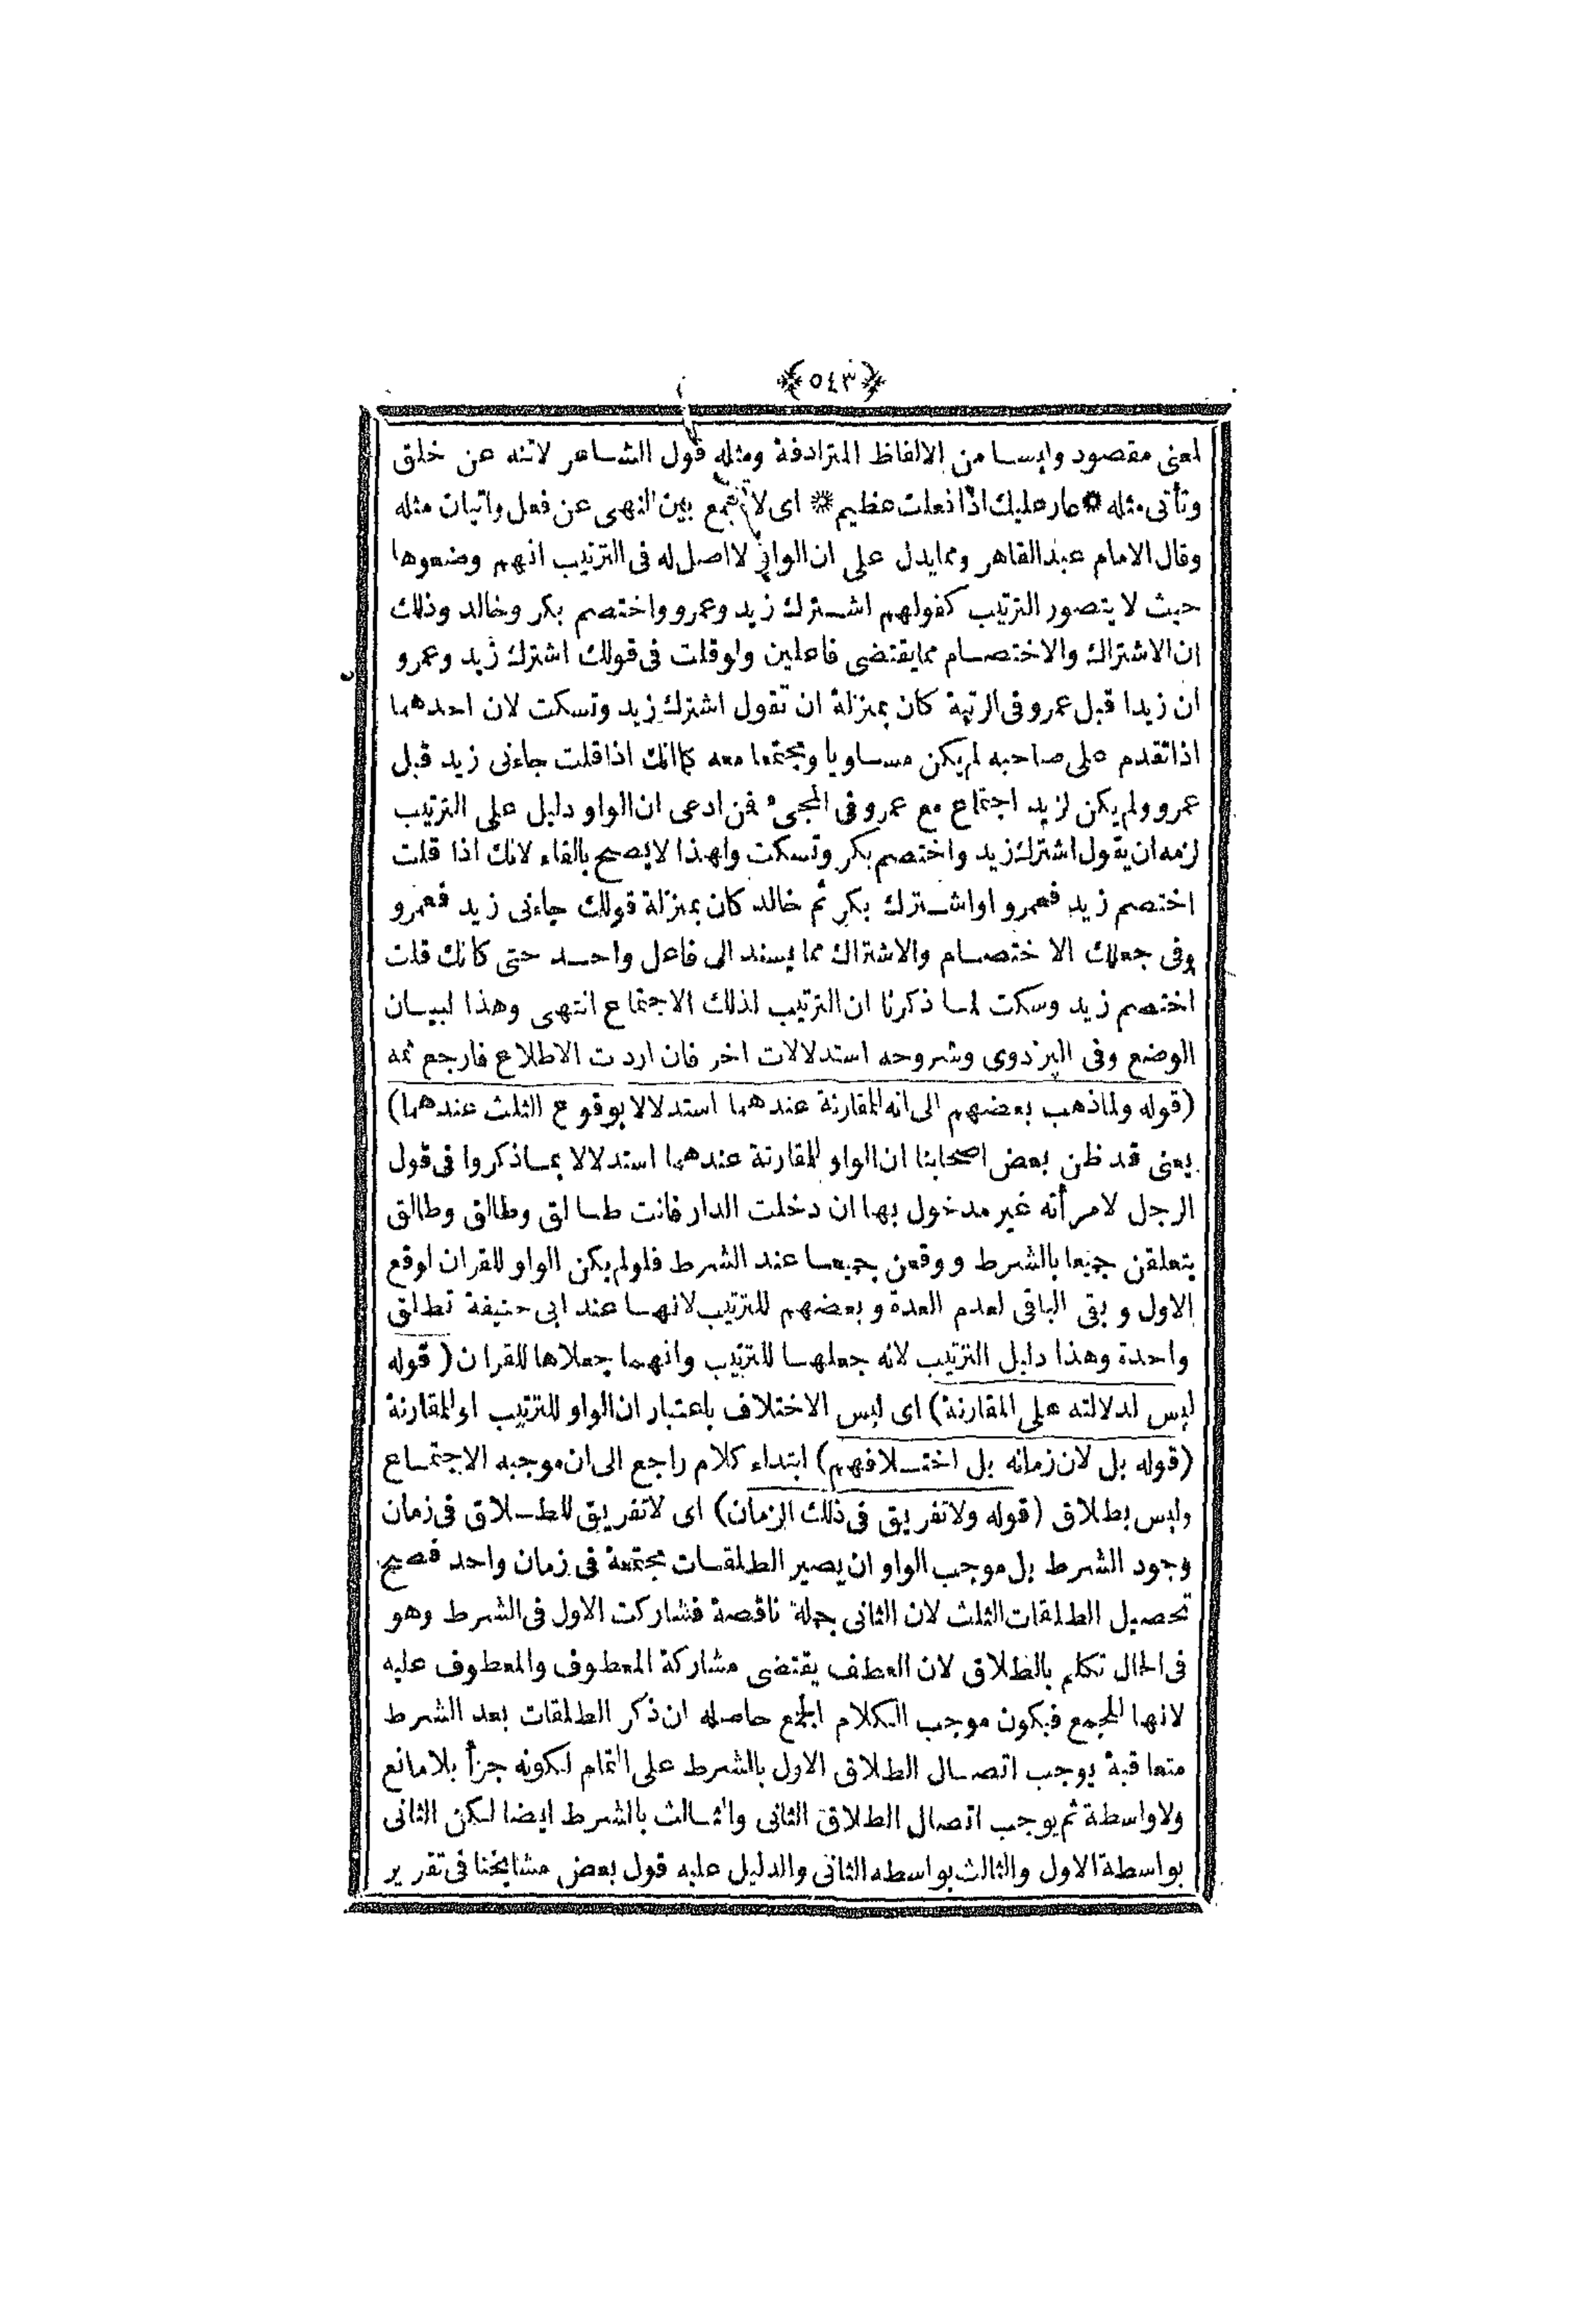 ﴿٥٤٣﴾
لمعنى مقصود وليسا من الالفاظ المترادفة ومثله قول الشاعر لاتنه عن خلق
وتأتى مثله * عار عليك اذا فعلت عظيم * اى لا تجمع بين النهى عن فعل واتيان مثله
وقال الامام عبد القاهر ومما يدل على ان الواو لا اصل له فى الترتيب انهم وضعوها
حيث لا يتصور الترتيب كقولهم اشترك زيد وعمرو واختصم بكر وخالد وذلك
ان الاشتراك والاختصام مما يقتضى فاعلين ولو قلت فى قولك اشترك زيد وعمرو
ان زيدا قبل عمرو فى الرتبة كان بمنزلة ان تقول اشترك زيد وتسكت لان احدهما
اذا تقدم على صاحبه لم يكن مساويا ومجتمعا معه كما انك اذا قلت جاءنى زيد قبل
عمرو ولم يكن لزيد اجتماع مع عمرو فى المجىء فمن ادعى ان الواو دليل على الترتيب
لزمه ان يقول اشترك زيد واختصم بكر وتسكت ولهذا لا يصح بالفاء لانك اذا قلت
اختصم زيد فعمرو او اشترك بكر ثم خالد كان بمنزلة قولك جاءنى زيد فعمرو
وفى جعلك الاختصام والاشتراك مما يسند الى فاعل واحد حتى كانك قلت
اختصم زيد وسكت لما ذكرنا ان الترتيب لذلك الاجتماع انتهى وهذا لبيان
الوضع وفى البزدوى وشروحه استدلالات اخر فان اردت الاطلاع فارجع ثمه
(قوله ولما ذهب بعضهم الى انه للمقارنة عندهما استدلالا بوقوع الثلث عندهما)
يعنى قد ظن بعض اصحابنا ان الواو للمقارنة عندهما استدلالا بما ذكروا فى قول
الرجل لامرأته غير مدخول بها ان دخلت الدار فانت طالق وطالق وطالق
يتعلقن جميعا بالشرط ووقعن جميعا عند الشرط فلو لم يكن الواو للقران لوقع
الاول وبقى الباقى لعدم العدة وبعضهم للترتيب لانها عند ابى حنيفة تطلق
واحدة وهذا دليل الترتيب لانه جعلها للترتيب وانهما جعلاها للقران (قوله
ليس لدلالته على المقارنة) اى ليس الاختلاف باعتبار ان الواو للترتيب او للمقارنة
(قوله بل لان زمانه بل اختلافهم) ابتداء كلام راجع الى ان موجبه الاجتماع
وليس بطلاق (قوله ولا تفريق فى ذلك الزمان) اى لا تفريق للطلاق فى زمان
وجود الشرط بل موجب الواو ان يصير الطلقات مجتمعة فى زمان واحد فصح
تحصيل الطلقات الثلث لان الثانى جملة ناقصة فشاركت الاول فى الشرط وهو
فى الحال تكلم بالطلاق لان العطف يقتضى مشاركة المعطوف والمعطوف عليه
لانها للجمع فيكون موجب الكلام الجمع حاصله ان ذكر الطلقات بعد الشرط
متعاقبة يوجب اتصال الطلاق الاول بالشرط على التمام لكونه جزأ بلا مانع
ولا واسطة ثم يوجب اتصال الطلاق الثانى والثالث بالشرط ايضا لكن الثانى
بواسطة الاول والثالث بواسطه الثانى والدليل عليه قول بعض مشايخنا فى تقرير